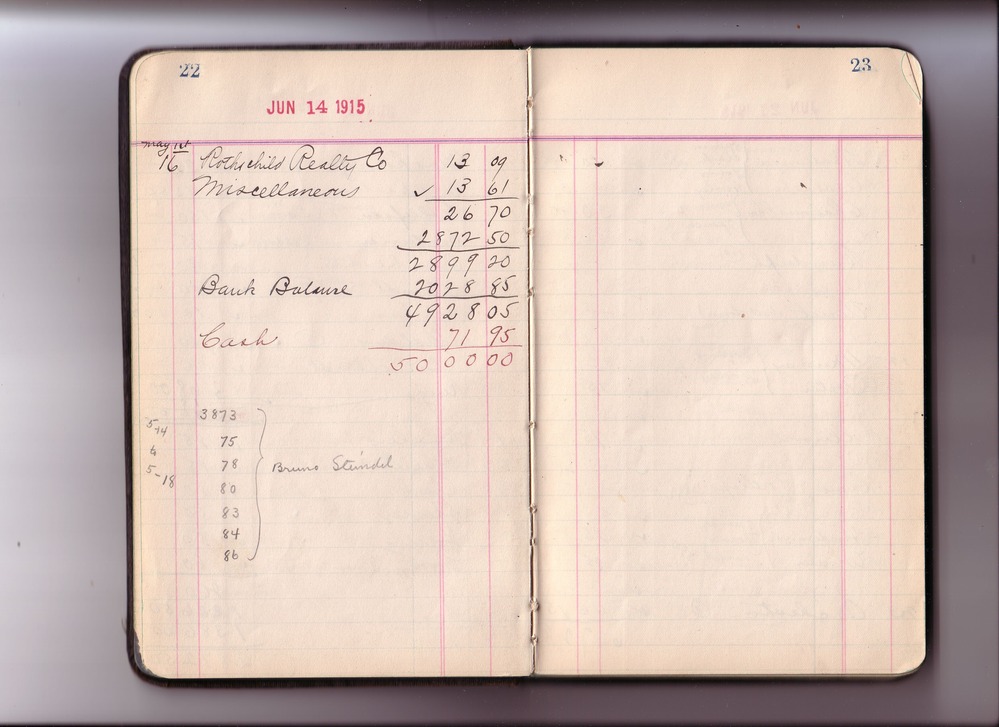 22
JUN 14 1915
May 1st
16 Rothschild Realty Co 13 09
Miscellaneous ✓ 13 61
26 70
2872 50
2899 20
Bank Balance 2028 85
4928 05
Cash 71 95
5000 00
3873
5-14
75
to
78 Bruno Steindel
5-18
80
83
84
86
23